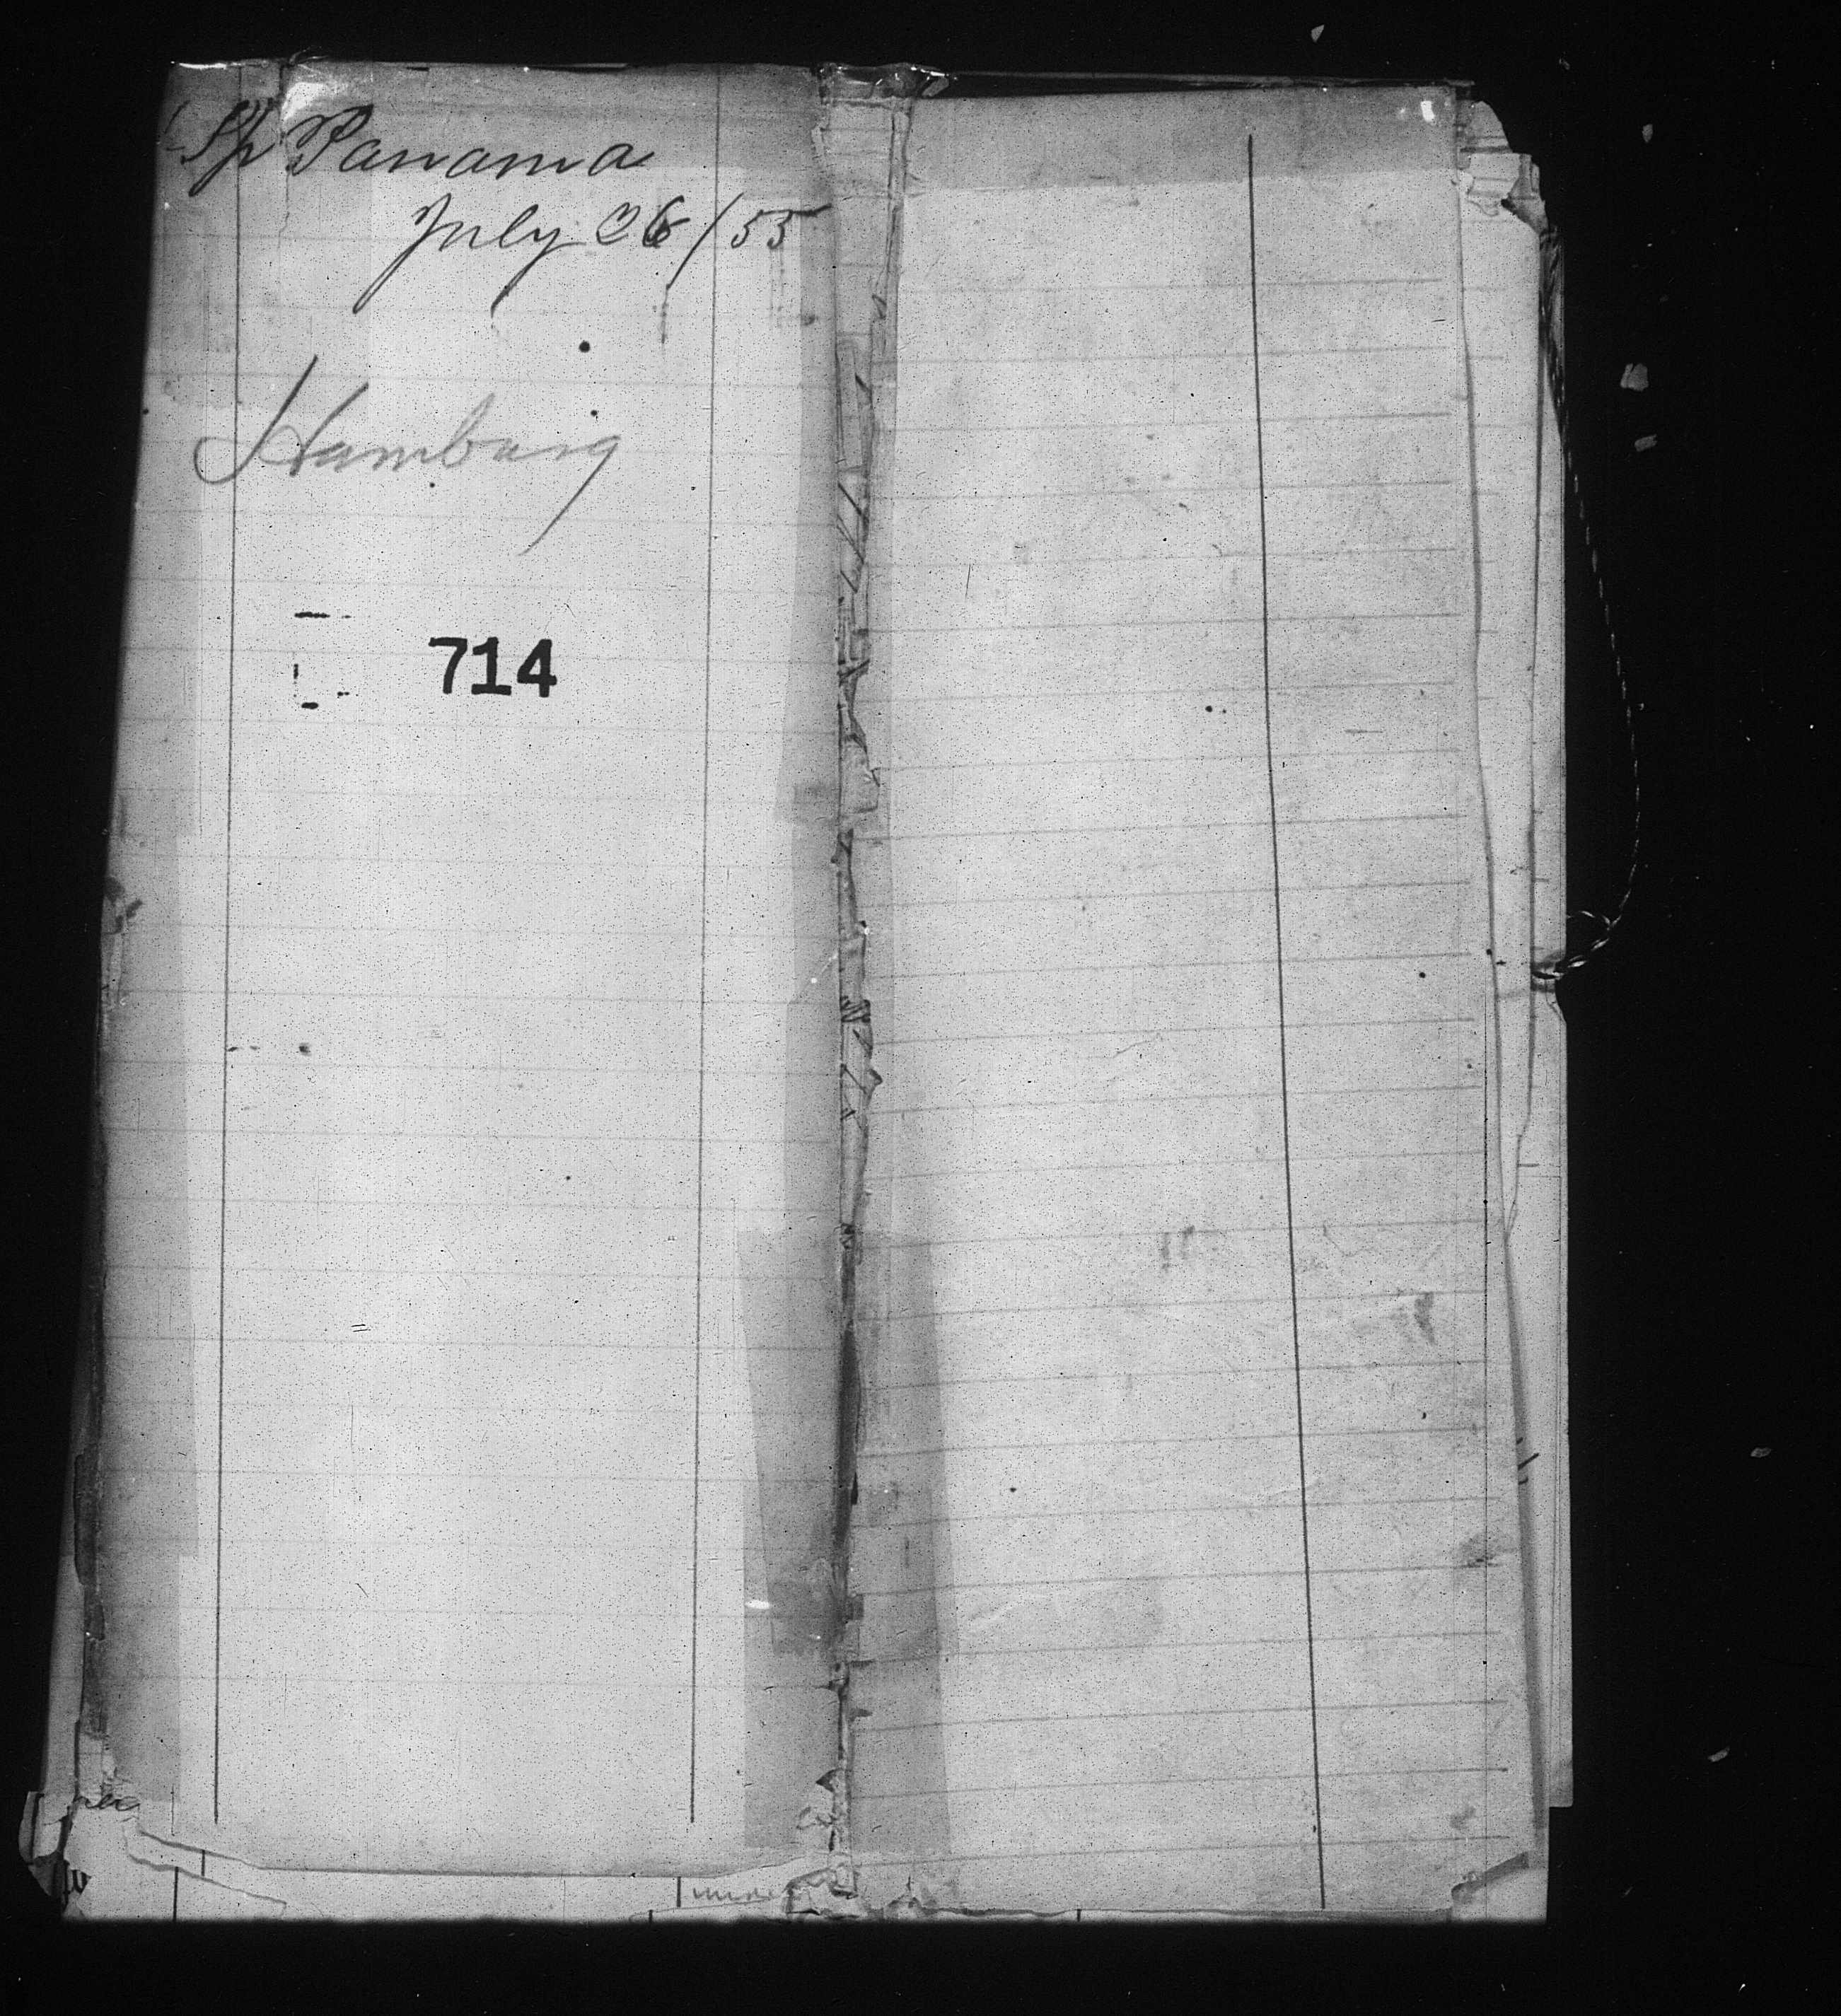 Sp Panama
July 26/55
Hamburg
714